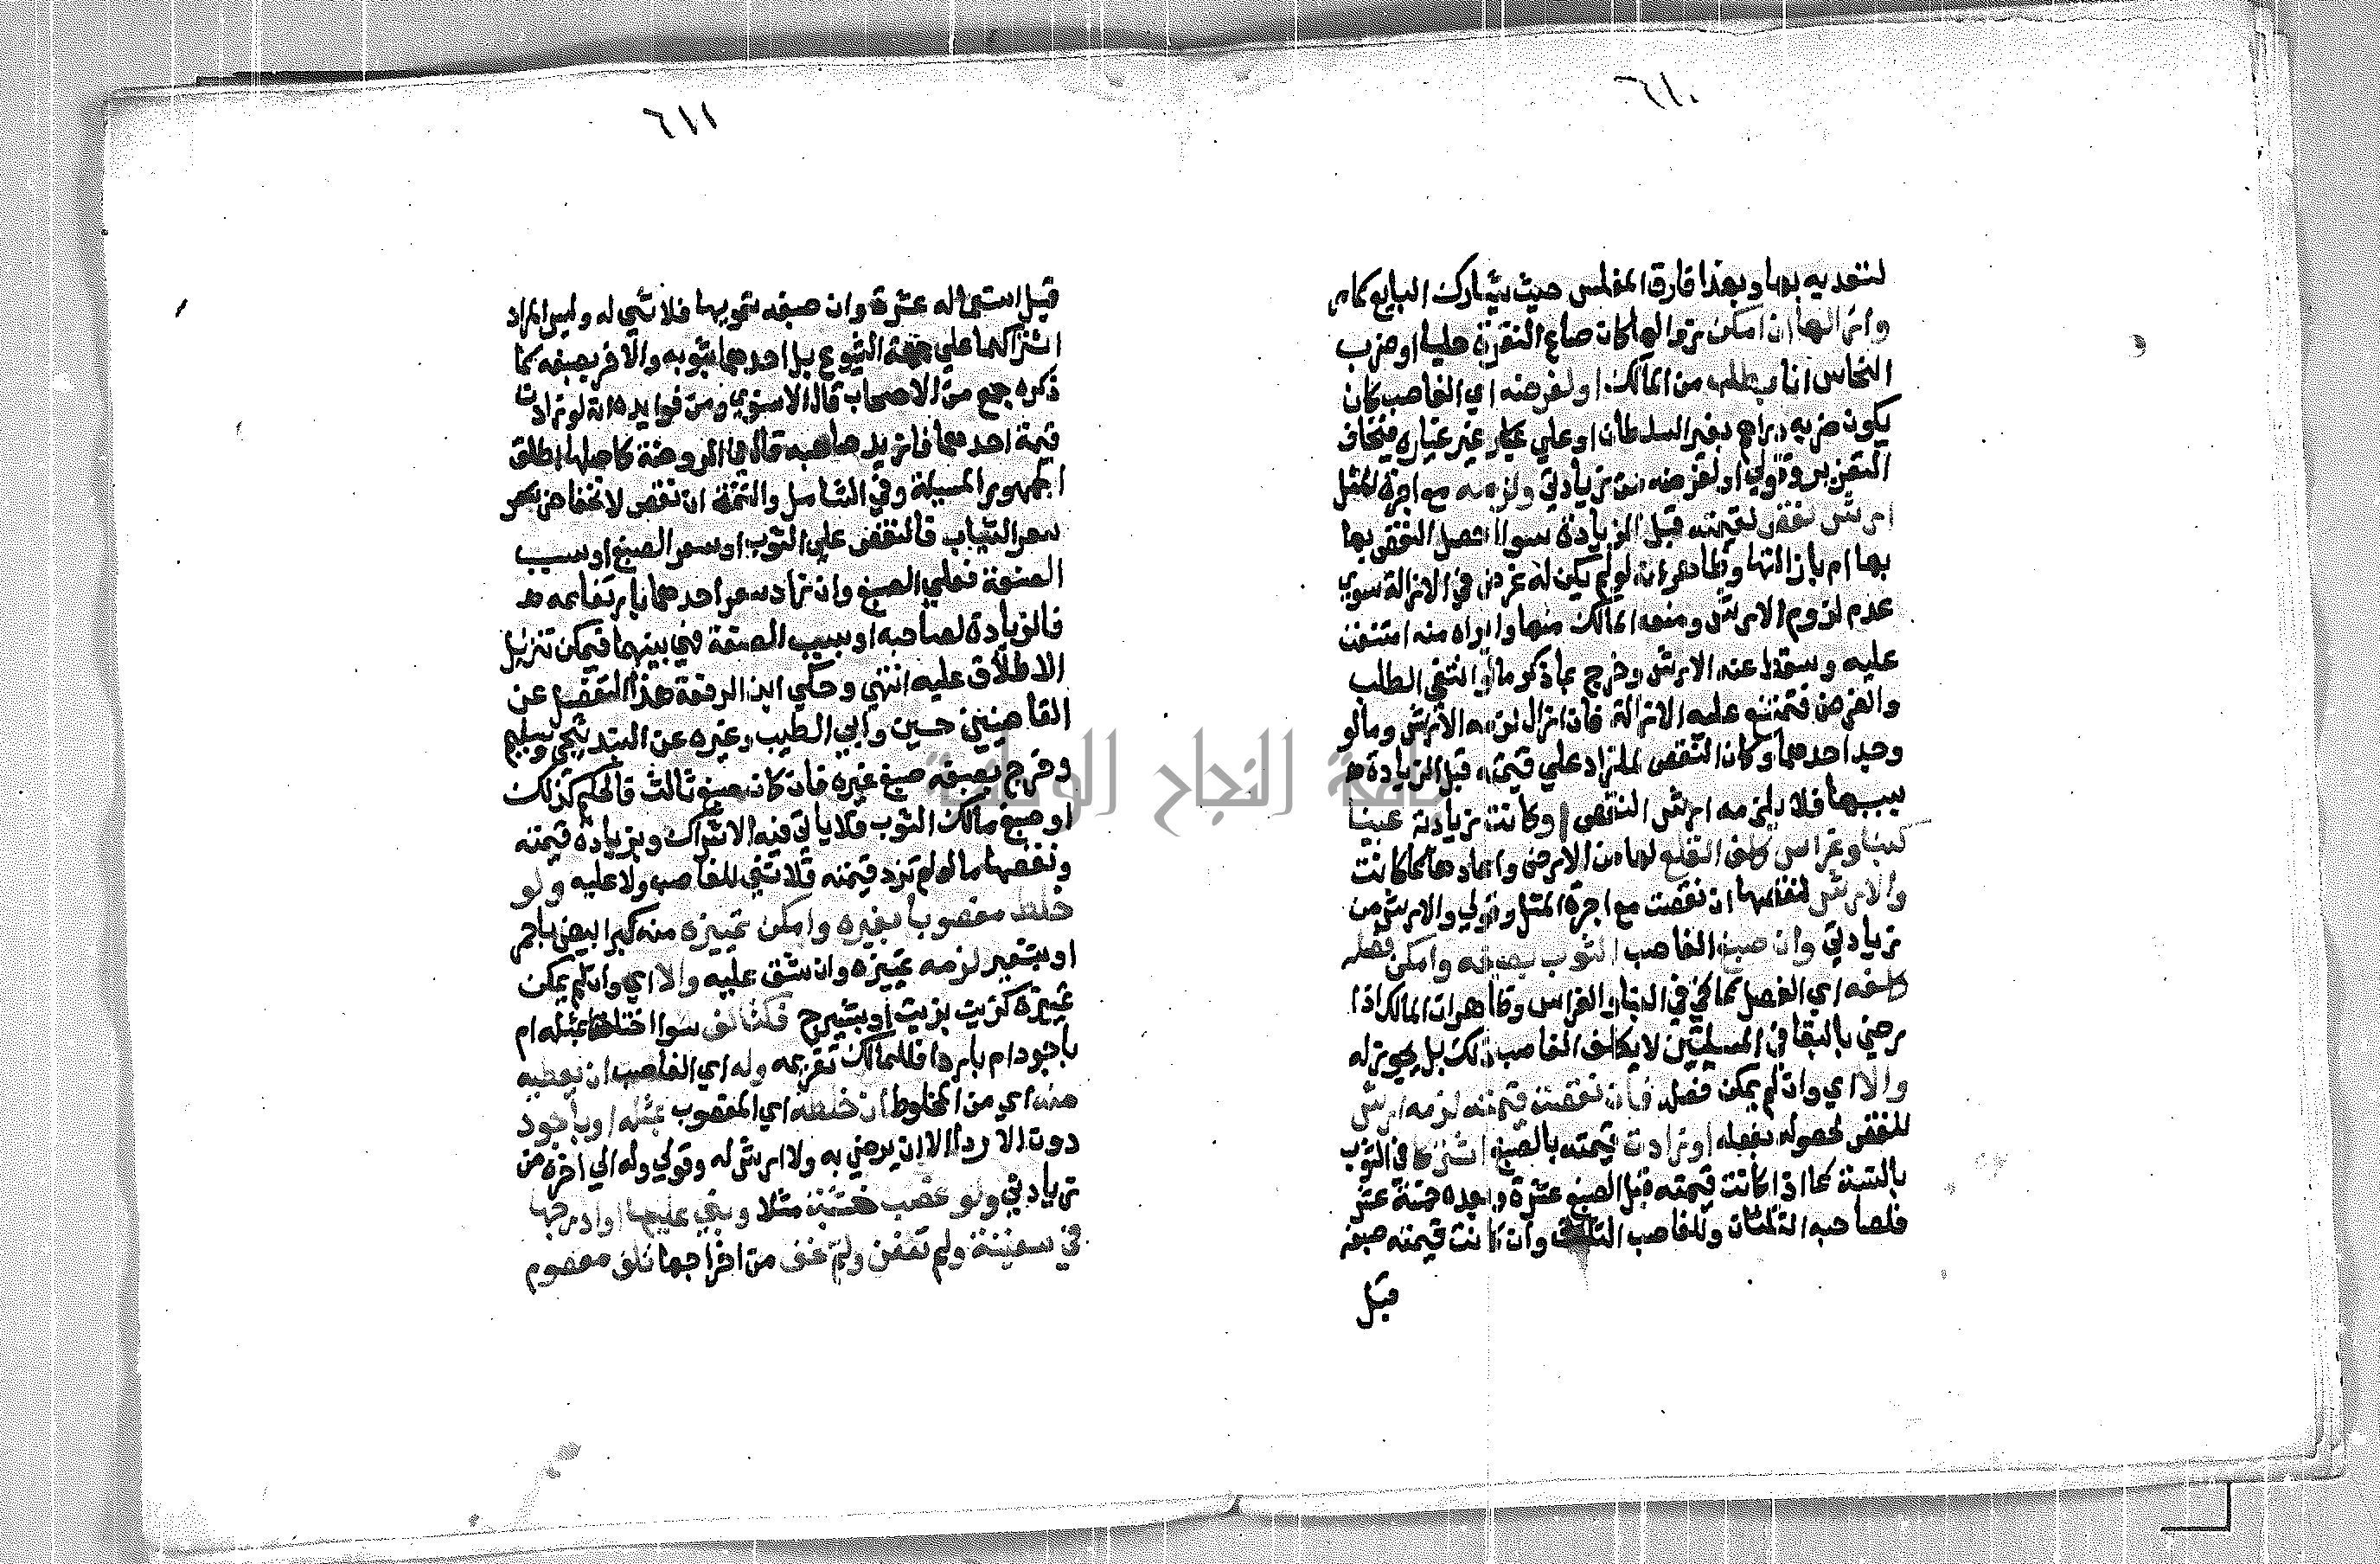 ٦١٠
لتعديه بها وبهذا فارق المفلس حيث يشارك البايع كما مر
وازالها ان امكن زوالها كان صاغ النقرة حليا او ضرب
النحاس انا بطلب من المالك او لغرضه اي الغاصب كان
يكون ضربه دراهم بغير السلطان او علي عيار غير عياره فيخاف
التعزير وقولي او لغرضه من زيادتي ولزمه مع اجرة المثل
ارش نقص لقيمته قبل الزيادة سوا احصل النقص بها
بها ام بازالتها وظاهر انه لو لم يكن له غرض في الازالة سوي
عدم لزوم الارش ومنعه المالك منها وابراه منه امتنعت
عليه وسقط عنه الارش وخرج بما ذكر ما لو انتفي الطلب
والغرض فتمتنع عليه الازالة فان ازال لزمه الارش وما لو
وجد احدهما وكان النقص لما زاد علي قيمته قبل الزيادة
بسببها فلا يلزمه ارش النقص او كانت زيادته عينا
كبنا وغراس كلف القلع لها من الارض واعادها كما كانت
والارش لنقصها ان نقصت مع اجرة المثل وقولي والارش من
زيادتي وان صبغ الغاصب الثوب بصبغه وامكن فصله
كلفه اي الفصل كما في البنا والغراس وظاهر ان المالك اذا
رضي بالبقا في المسيلتين لا يكلف الغاصب ذلك بل يجوز له
والا اي وان لم يمكن فصله فان نقصت قيمته لزمه ارش
للنقص لحصوله بفعله او زادت قيمته بالصبغ اشتركا في الثوب
بالنسبة كما اذا كانت قيمته قبل الصبغ عشرة وبعده خمسة عشر
فلصاحبه الثلثان وللغاصب الثلث وان كانت قيمته صبغه
قبل
٦١١
قبل استعماله عشرة وان صبغه تمويها فلا شي له وليس المراد
اشتراكهما علي جهة الشيوع بل احدهما بثوبه والاخر بصبغه كما
ذكره جمع من الاصحاب قال الاسنوي ومن فوايده انه لو زادت
قيمة احدهما فاز به صاحبه قال في الروضة كاصلها اطلق
الجمهور المسيلة وفي الشامل والتتمة ان نقص لانخفاض سعر
سعر الثياب فالنقص علي الثوب او سعر الصبغ او بسبب
الصنعة فعلي الصبغ وان زاد سعر احدهما بارتفاعه
فالزيادة لصاحبه او بسبب الصنعة فهي بينهما فيمكن تنزيل
الاطلاق عليه انتهي وحكي ابن الرفعة هذا التفصيل عن
القاضيين حسين وابي الطيب وغيره عن البندنيجي وسليم
وخرج بصبغه صبغ غيره فان كان صبغ ثالث فالحكم كذلك
او صبغ مالك الثوب فلا ياتي فيه الاشتراك وبزيادة قيمته
ونقصها ما لو لم تزد قيمته فلا شي للغاصب ولا عليه ولو
خلط مغصوبا بغيره وامكن تمييزه منه كبر ابيض باحمر
او بشعير لزمه تمييزه وان شق عليه والا اي وان لم يمكن
تمييزه كزيت بزيت او بشيرج فكتالف سوا اختلط بمثله ام
باجود ام باردا فللمالك تغريمه وله اي الغاصب ان يعطيه
منه اي من المخلوط ان خلطه اي المغصوب بمثله او باجود
دون الاردا الا ان يرضي به ولا ارش له وقولي وله الي اخره من
زيادتي ولو غصب خشبة مثلا وبني عليها او ادرجها
في سفينة ولم تعفن ولم يخف من اخراجها تلف معصوم
جامعة النجاح الوطنية